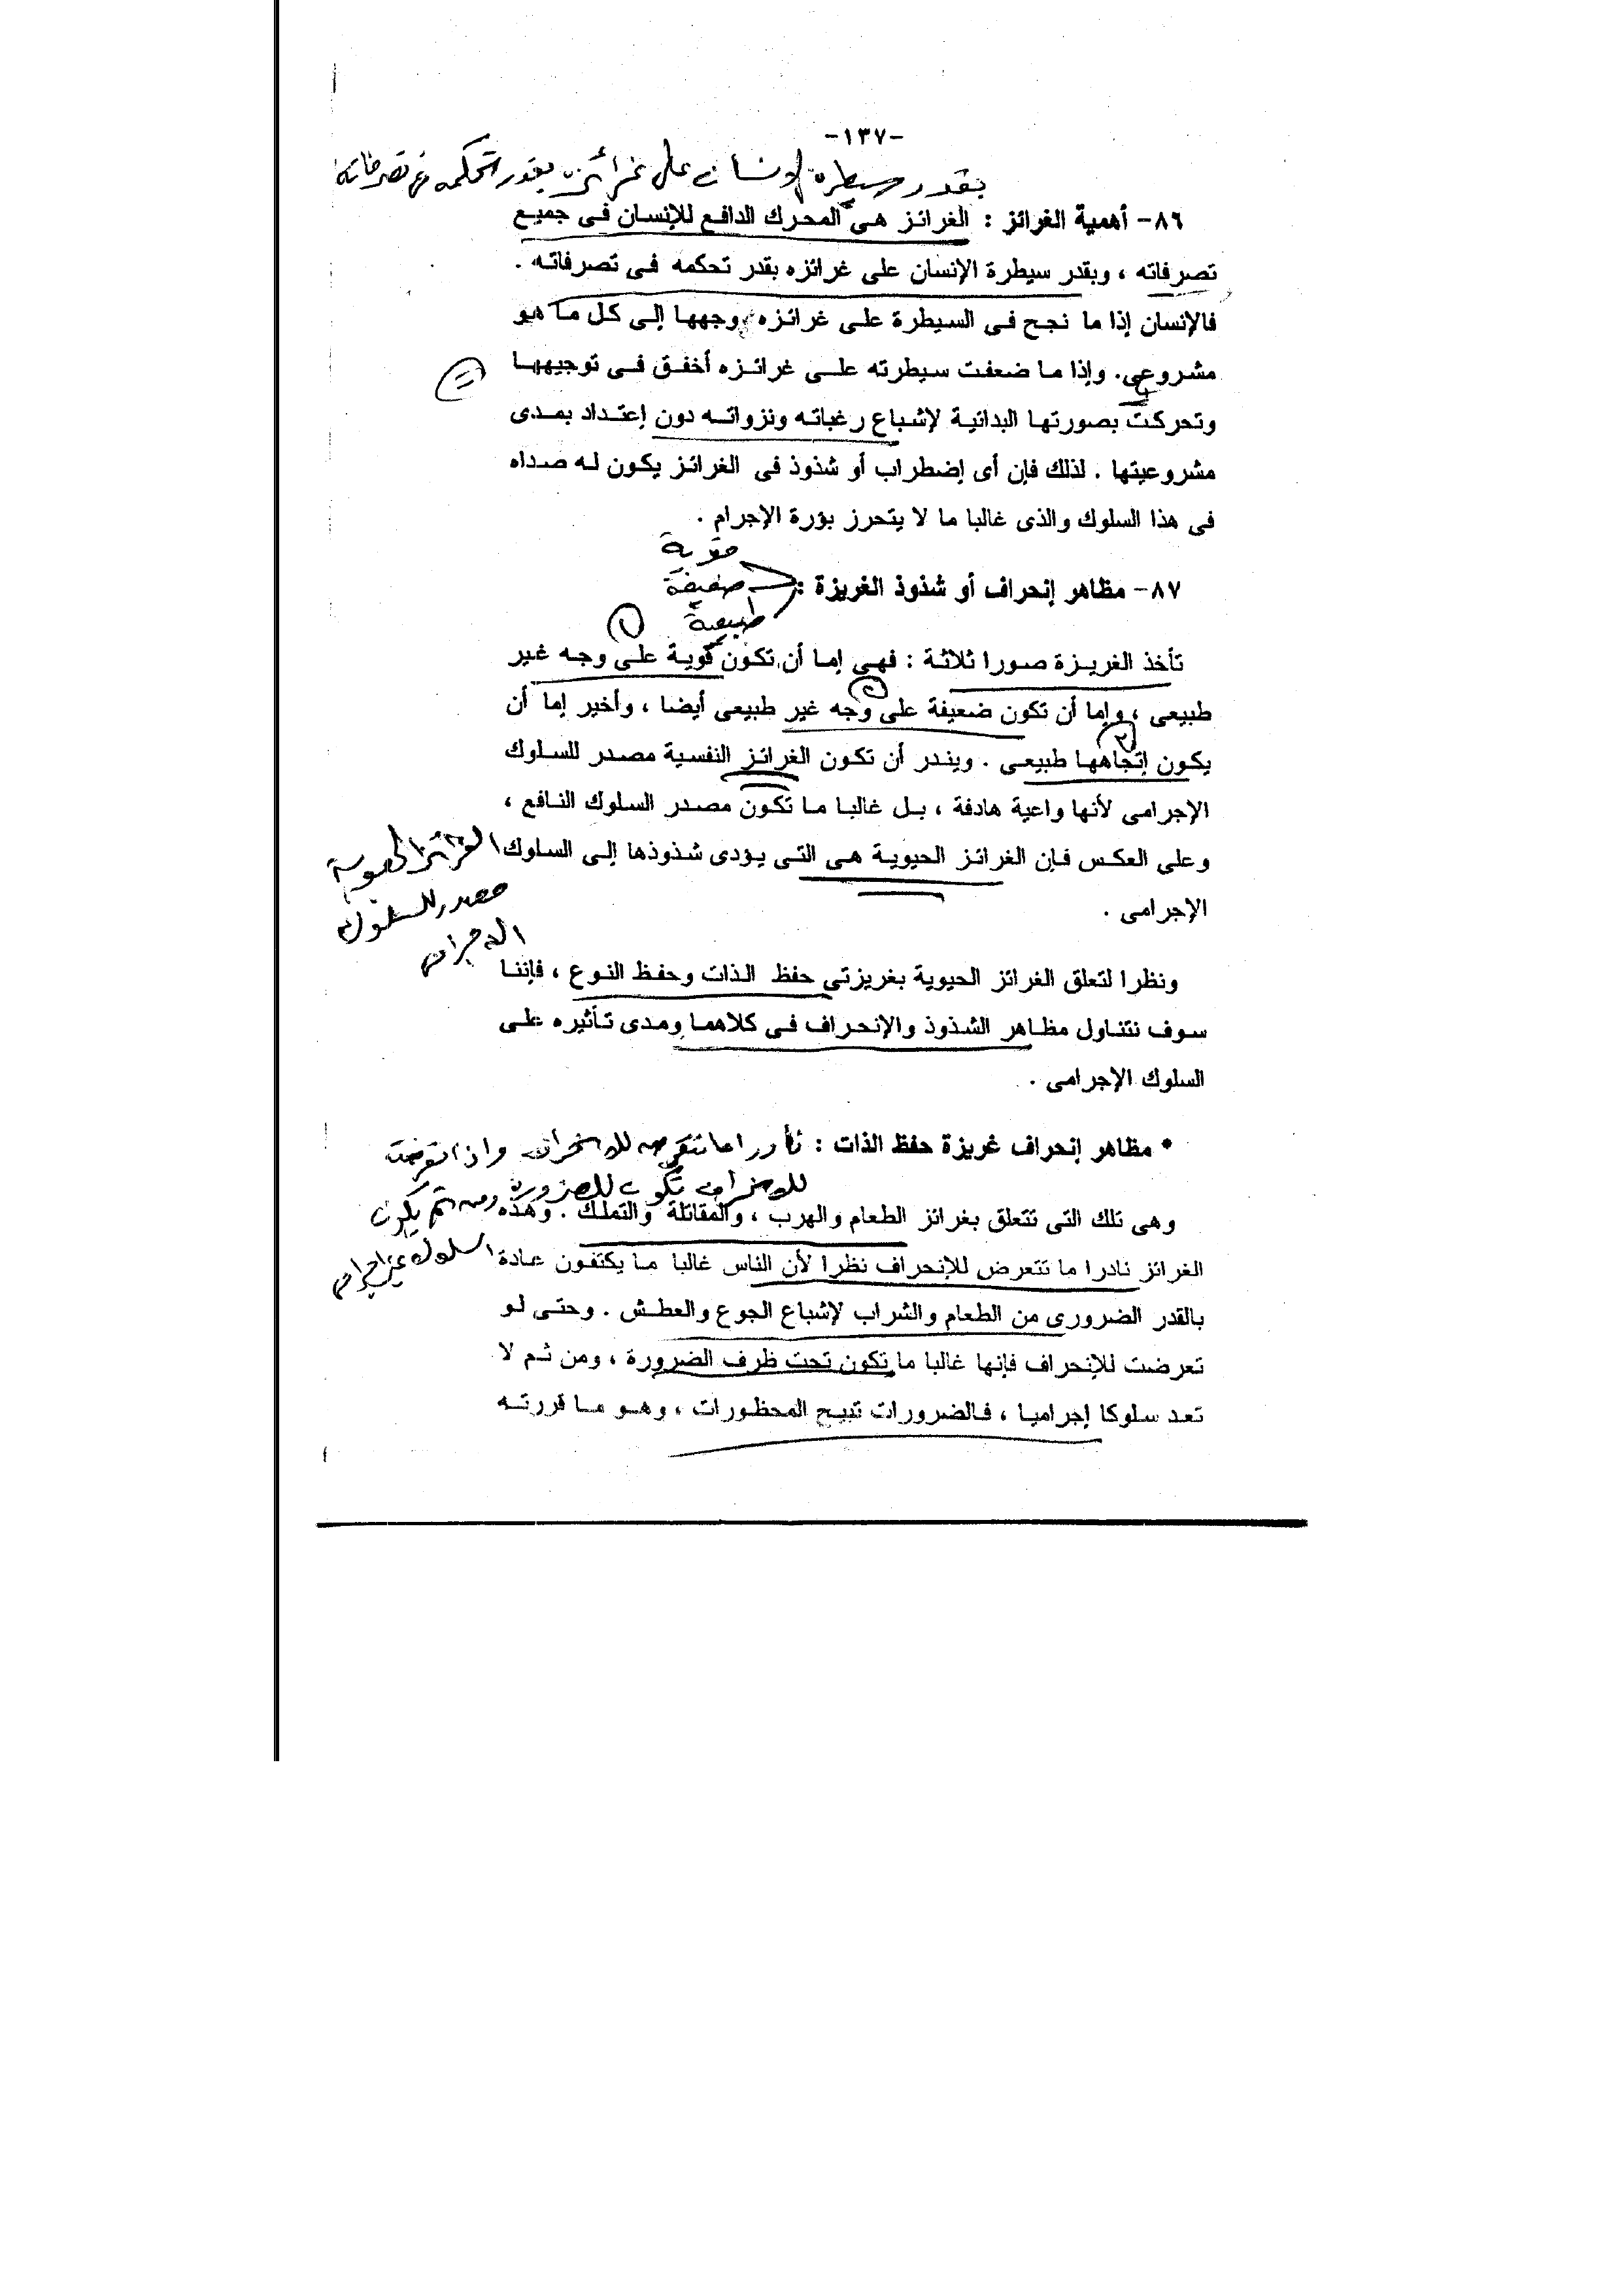 -١٣٧-
بقدر سيطرة الإنسان على غرائزه بقدر تحكمه فى تصرفاته
٨٦- أهمية الغرائز : الغرائز هى المحرك الدافع للإنسان فى جميع
تصرفاته ، وبقدر سيطرة الإنسان على غرائزه بقدر تحكمه فى تصرفاته .
فالإنسان إذا ما نجح فى السيطرة على غرائزه وجهها إلى كل ما هو
مشروعى. وإذا ما ضعفت سيطرته على غرائزه أخفق فى توجيهها
وتحركت بصورتها البدائية لإشباع رغباته ونزواته دون إعتداد بمدى
مشروعيتها . لذلك فإن أى إضطراب أو شذوذ فى الغرائز يكون له صداه
فى هذا السلوك والذى غالبا ما لا يتحرز بؤرة الإجرام .
قوية
٨٧- مظاهر إنحراف أو شذوذ الغريزة : ضعيفة
طبيعية
١
تأخذ الغريزة صورا ثلاثة : فهى إما أن تكون قوية على وجه غير
٢
طبيعى ، وإما أن تكون ضعيفة على وجه غير طبيعى أيضا ، وأخير إما أن
٣
يكون إتجاهها طبيعى . ويندر أن تكون الغرائز النفسية مصدر للسلوك
الإجرامى لأنها واعية هادفة ، بل غالبا ما تكون مصدر السلوك النافع ،
وعلى العكس فإن الغرائز الحيوية هى التى يؤدى شذوذها إلى السلوك
الغرائز الحيوية
مصدر للسلوك
الإجرامى
الإجرامى .
ونظرا لتعلق الغرائز الحيوية بغريزتى حفظ الذات وحفظ النوع ، فإننا
سوف نتناول مظاهر الشذوذ والإنحراف فى كلاهما ومدى تأثيره على
السلوك الإجرامى .
• مظاهر إنحراف غريزة حفظ الذات : نادرا ما تتعرض للانحراف واذا تعرضت
للانحراف تكون للضرورة ومن ثم يكون
السلوك غير إجرامى
وهى تلك التى تتعلق بغرائز الطعام والهرب ، والمقاتلة والتملك . وهذه
الغرائز نادرا ما تتعرض للإنحراف نظرا لأن الناس غالبا ما يكتفون عادة
بالقدر الضرورى من الطعام والشراب لإشباع الجوع والعطش . وحتى لو
تعرضت للإنحراف فإنها غالبا ما تكون تحت ظرف الضرورة ، ومن ثم لا
تعد سلوكا إجراميا ، فالضرورات تبيح المحظورات ، وهو ما قررته